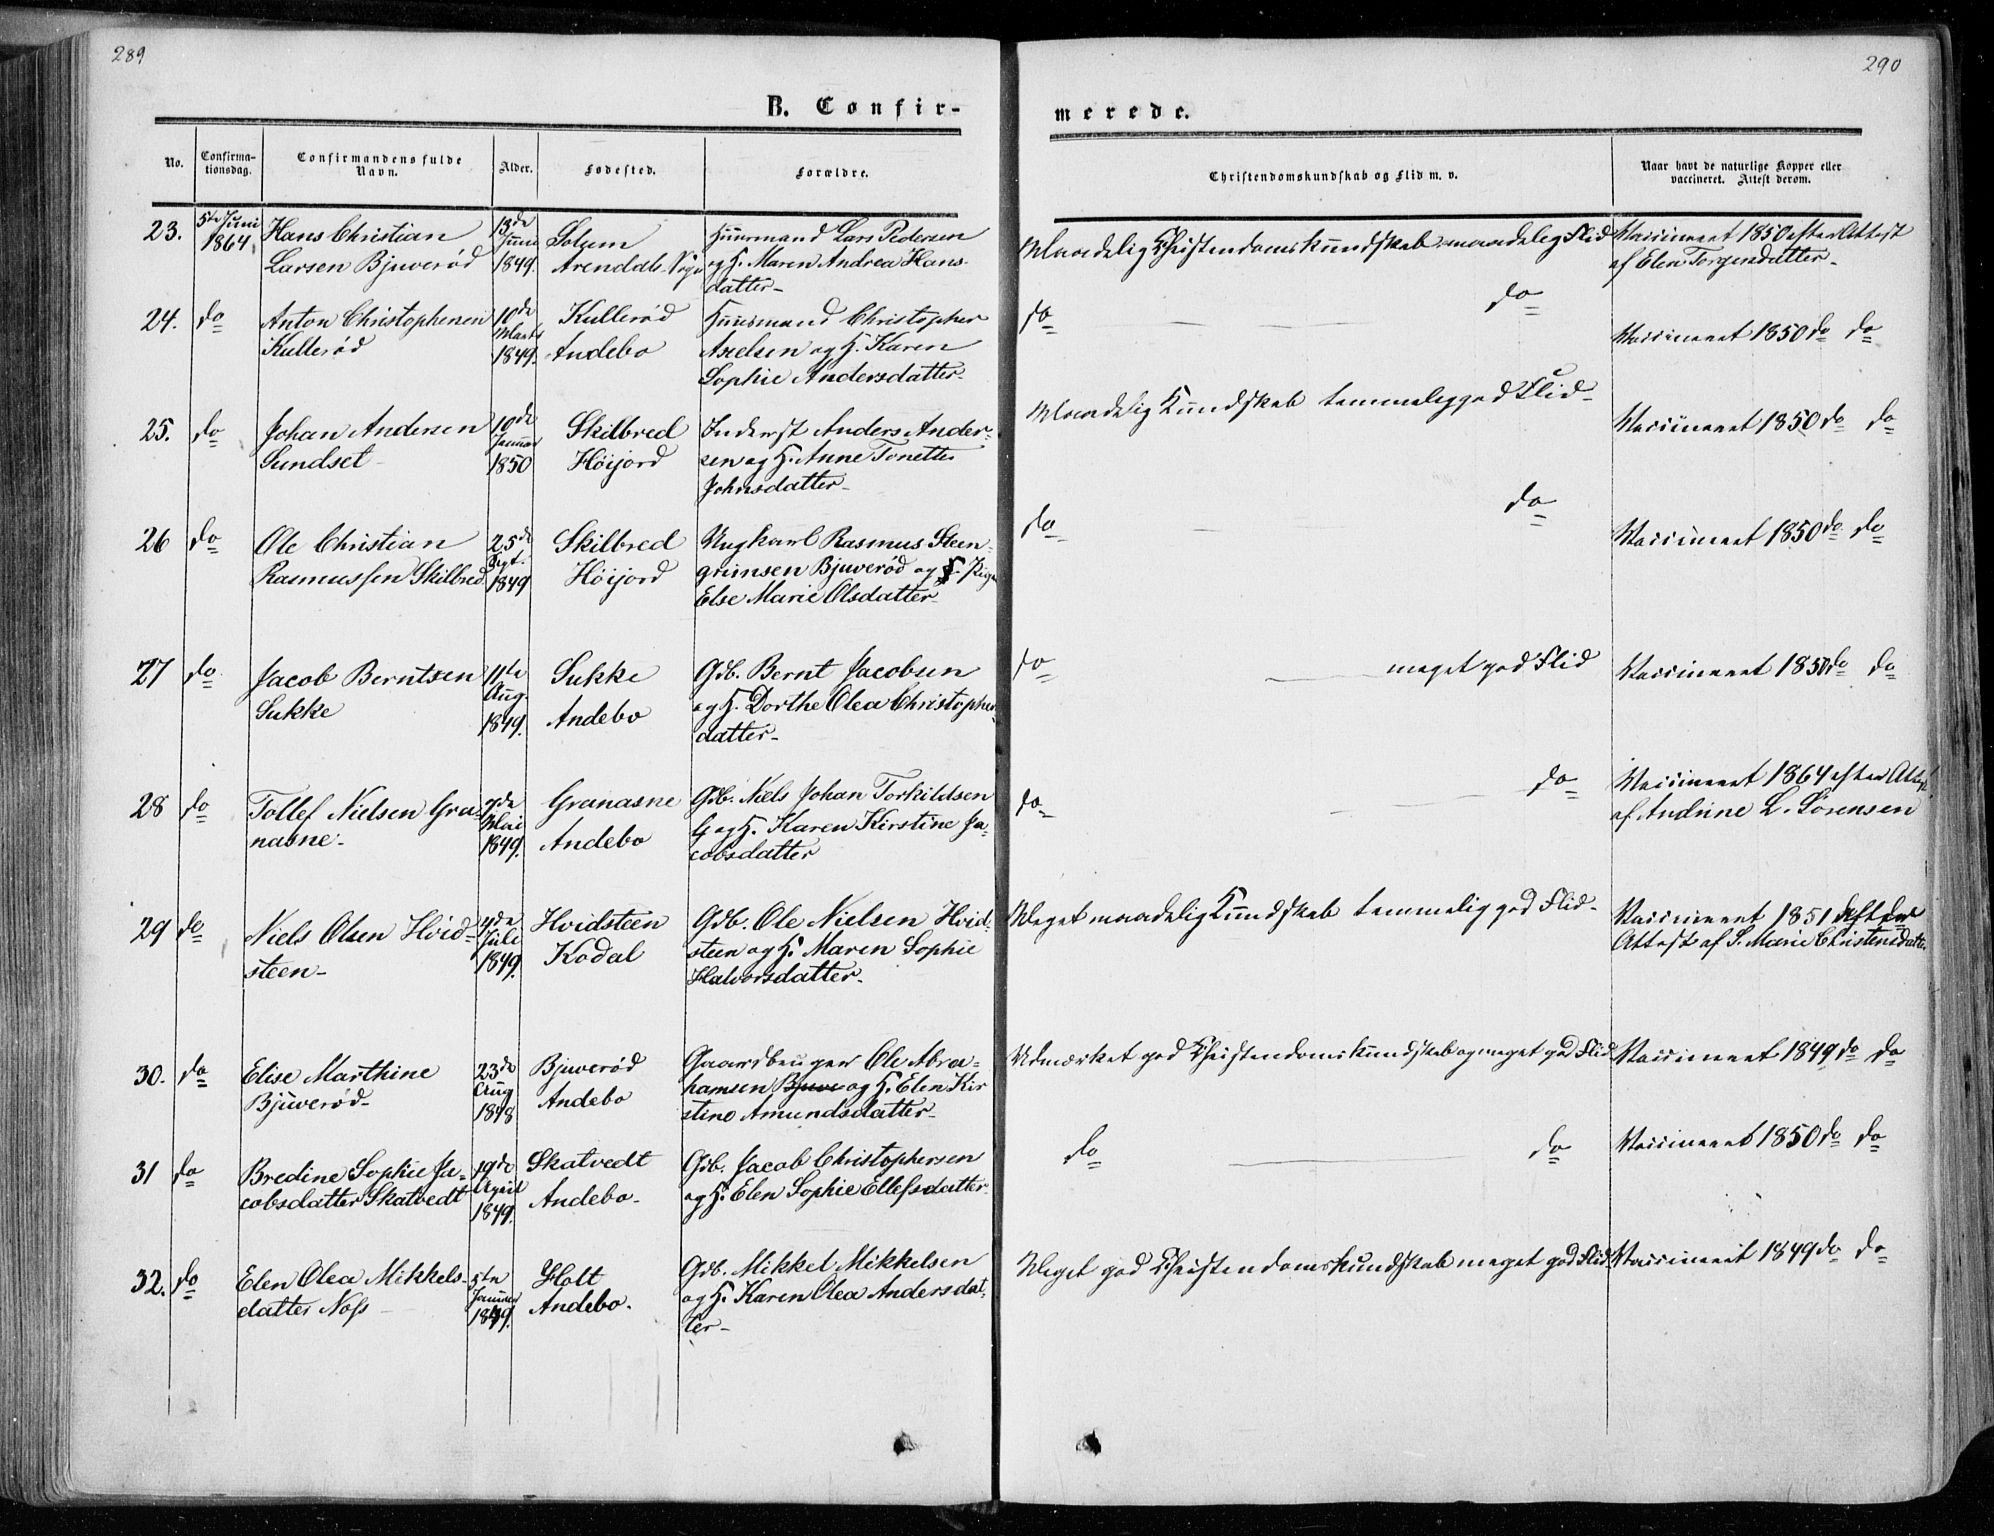 289
290
B. Confir-
merede.
No.
Confirma-
tionsdag.
Confirmandens fulde
Navn.
Alder.
Fødested.
Forældre.
Christendomskundskab og Flid m. v.
Naar havt de naturlige Kopper eller
vaccineret. Attest derom.
23. 5te Juni Hans Christian 13de Solum Huusmand Lars Pedersen Maadelig Christendomskundskab maadelig Flid Vaccineret 1850 efter Attest
1864 Larsen Bjuverød Juni Arendals Sogn og H. Maren Andrea Hans- af Elen Torgersdatter-
1849. datter-
24. do Anton Christophersen 10de Kullerød Huusmand Christopher do do Vaccineret 1850 do do
Kullerød Marts Andebo Axelsen og H. Karen
1849. Sophie Andersdatter-
25. do Johan Andersen 10de Skilbred Inderst Anders Ander- Maadelig Kundskab temmelig god Flid- Vaccineret 1850 do do
Sundset Januar Høijord sen og H. Anne Tonette
1850 Johnsdatter-
26 do Ole Christian 25de Skilbred Ungkarl Rasmus Steen- do do Vaccineret 1850 do do
Rasmussen Skilbred Sept. Høijord grimsen Bjuverød og Pige
1849 Else Marie Olsdatter-
27 do Jacob Berntsen 11te Sukke Gdb. Bernt Jacobsen do meget god Flid Vaccineret 1850 do do
Sukke Aug. Andebo og H. Dorthe Olea Christophers-
1849. datter-
28 do Tollef Nielsen Gra- 7de Granasne Gdb. Niels Johan Torkildsen do do Vaccineret 1864 efter Attest
nasne- Mai Andebo G og H. Karen Kirstine Ja- af Andrine L. Sørensen
1849. cobsdatter
29 do Niels Olsen Hvid- Juli Hvidsteen Gdb. Ole Nielsen Hvid- Meget maadelig Kundskab temmelig god Flid- Vaccineret 1851 efter
steen- 1849. Kodal steen og H. Maren Sophie Attest af S. Marie Christensdatter
Halvorsdatter-
30. do Elise Marthine 23de Bjuverød Gaardbruger Ole Abra- Udmærket god Christendomskundskab og meget god Flid Vaccineret 1849 do do
Bjuverød- Aug Andebo hamsen Bjuve og H. Elen Kir
1848 stine Amundsdatter-
31 do Bredine Sophie Ja- 19de Skatvedt Gdb. Jacob Christophersen do do Vaccineret 1850 do do
cobsdatter Skatvedt April Andebo- og H. Elen Sophie Ellefsdatter-
1849.
32. do Elen Olea Mikkels- 5te Holt Gdb. Mikkel Mikkelsen Meget god Christendomskundskab meget god Flid Vaccineret 1849 do do
datter Januar Andebo. og H. Karen Olea Andersdat-
1849. ter-